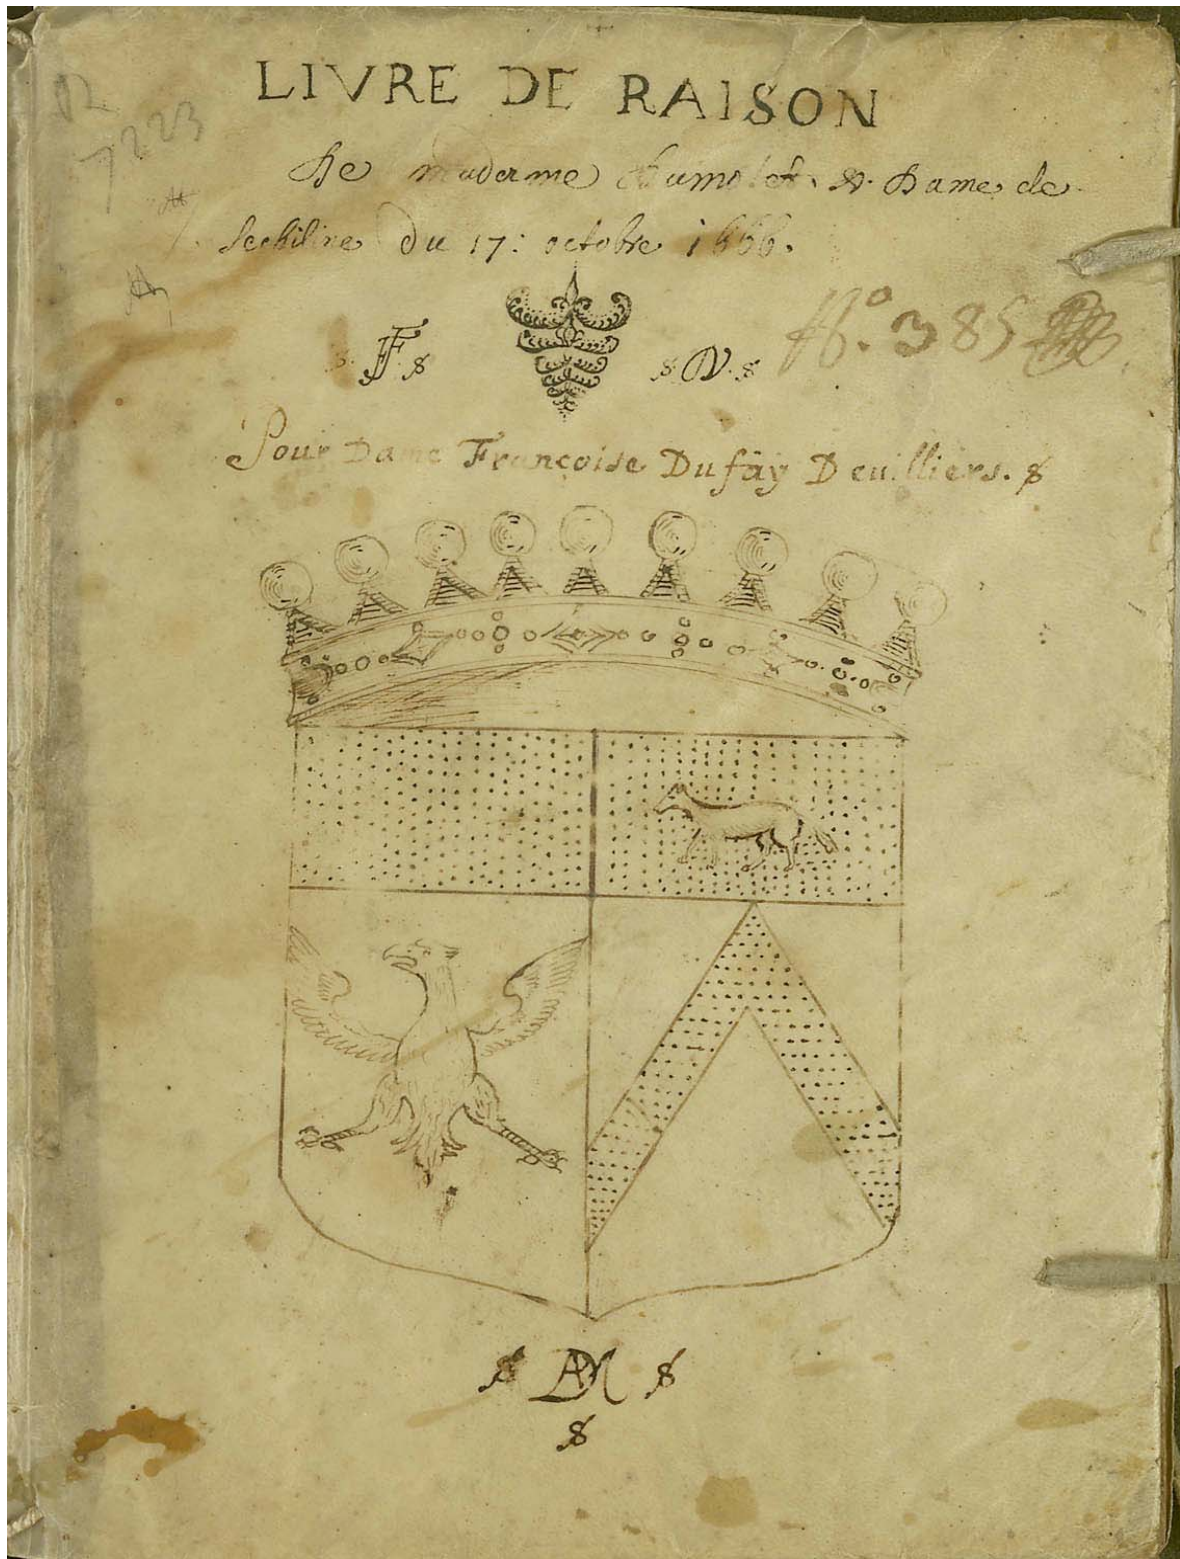 LIVRE DE RAISON
De maderme & Dame de
Sechiline du 17: octobre 1666.
R 7223
N.º 385
Pour Dame Françoise Dufäy Deuilliers. $